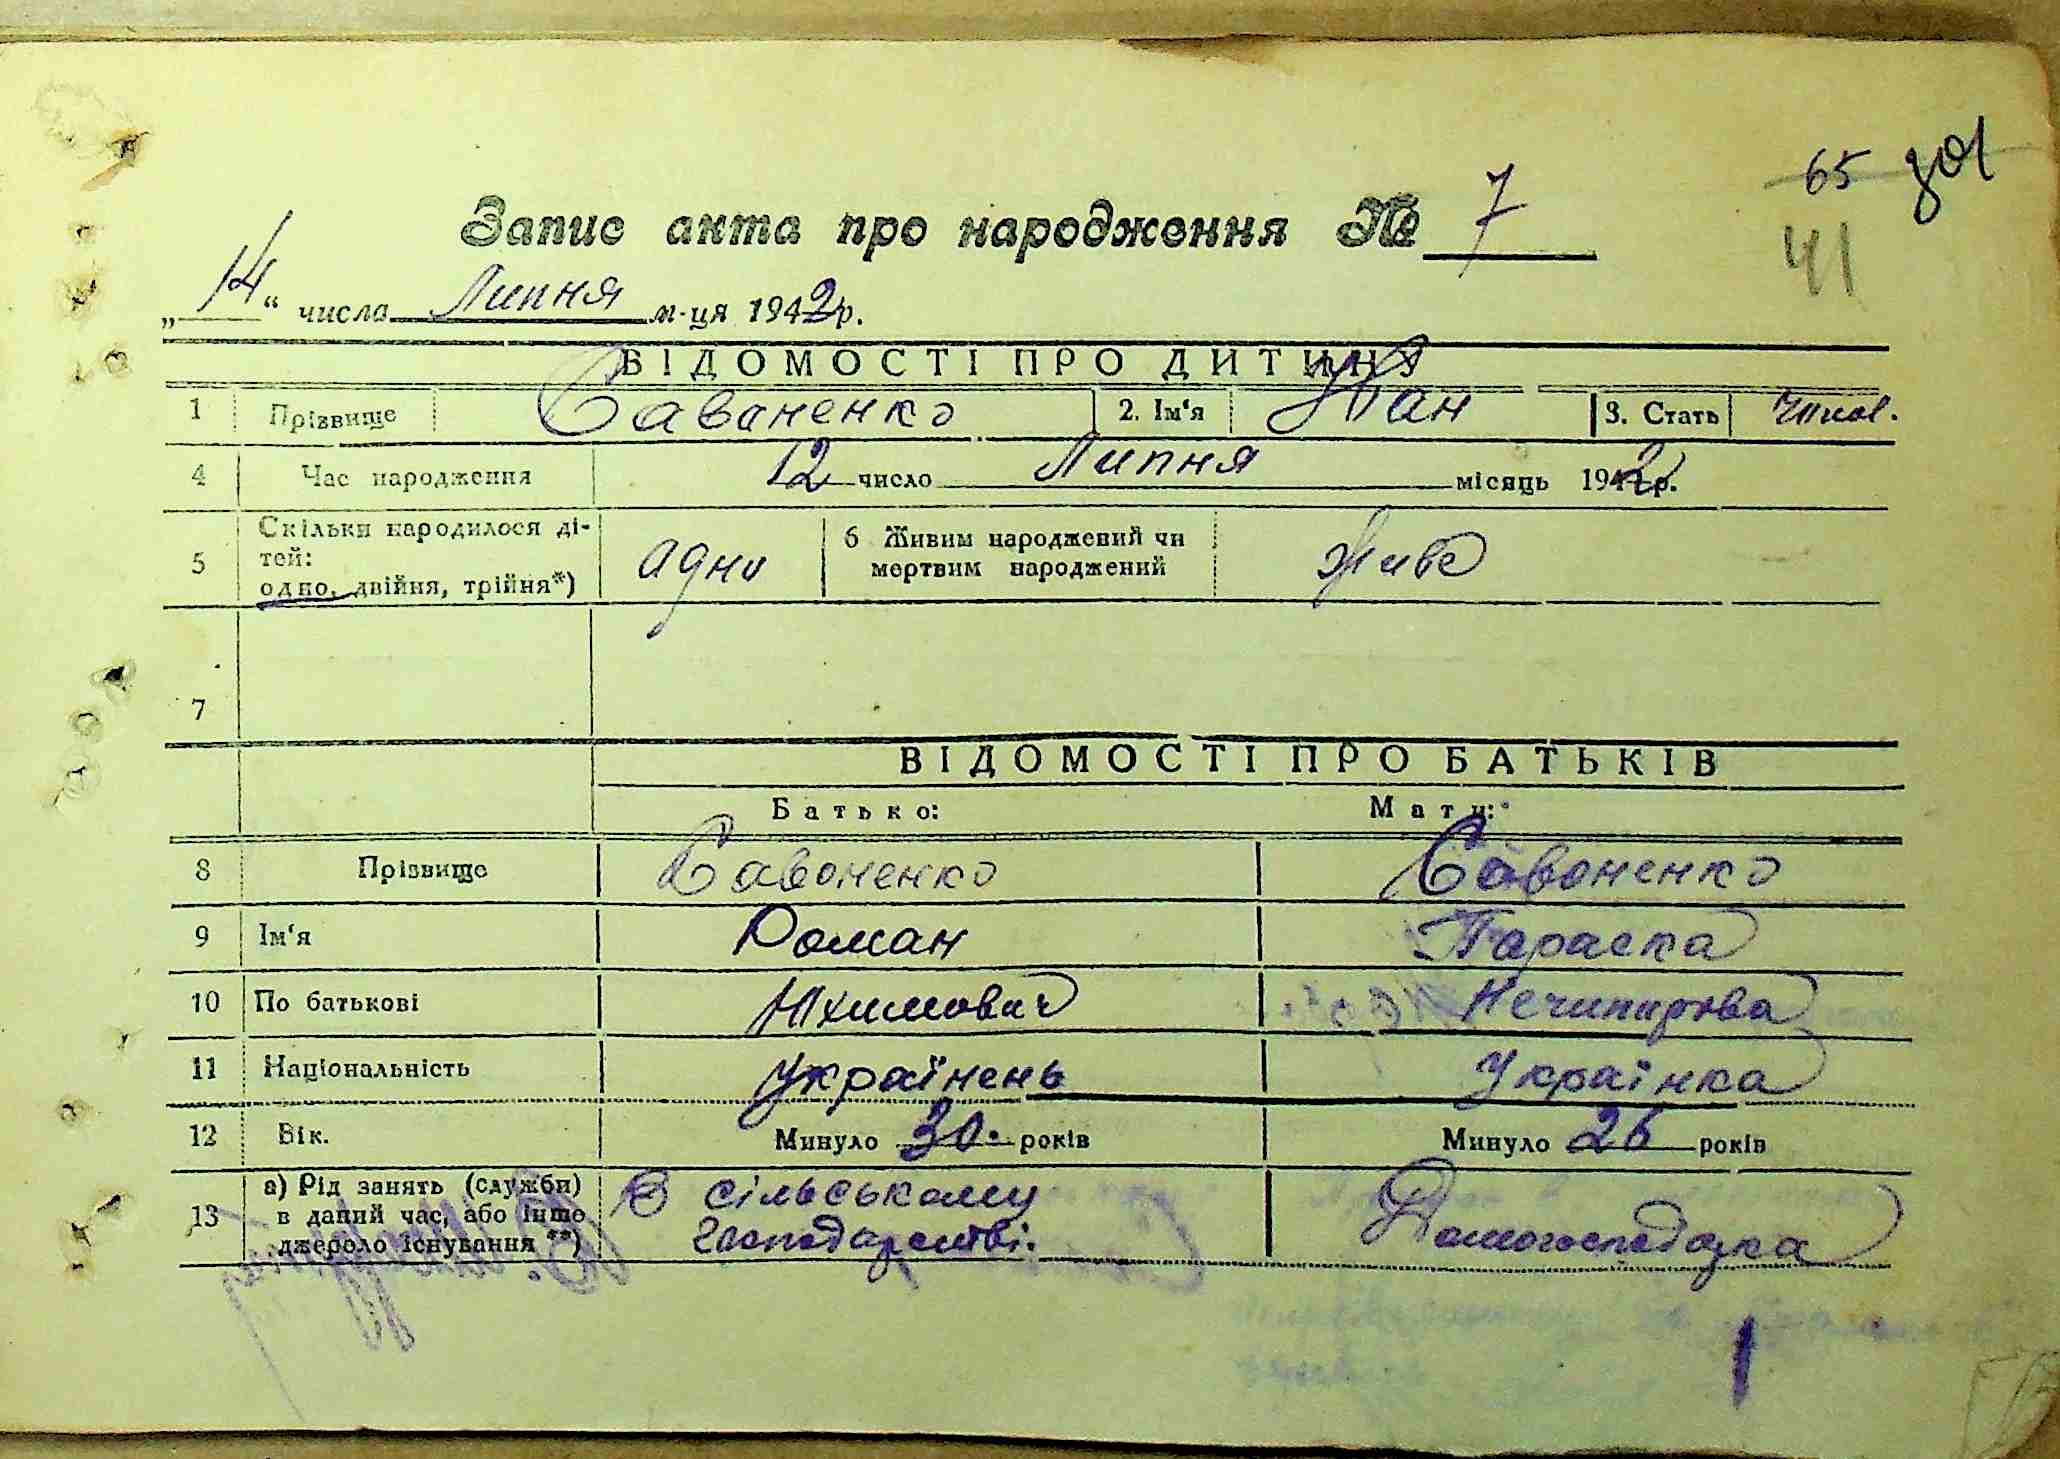 65 зоі
41
Запис акта про народження № 7
„14“ числа Липня м-ця 1942 р.
ВІДОМОСТІ ПРО ДИТИНУ
1 Прізвище Саваненко 2. Ім'я Іван 3. Стать чолов.
4 Час народження 12 число Липня місяць 1942 р.
5 Скільки народилося ді-
тей:
одно, двійня, трійня*) адно 6 Живим народжений чи
мертвим народжений живе
7
ВІДОМОСТІ ПРО БАТЬКІВ
Батько: Мати:
8 Прізвище Савоненко Савоненко
9 Ім'я Роман Параска
10 По батькові Юхимович Нечипирова
11 Національність Українень Українка
12 Вік. Минуло 30. років Минуло 26 років
13 а) Рід занять (служби)
в даний час, або інше
джерело існування **) В сільському
господарстві. Домогосподарка